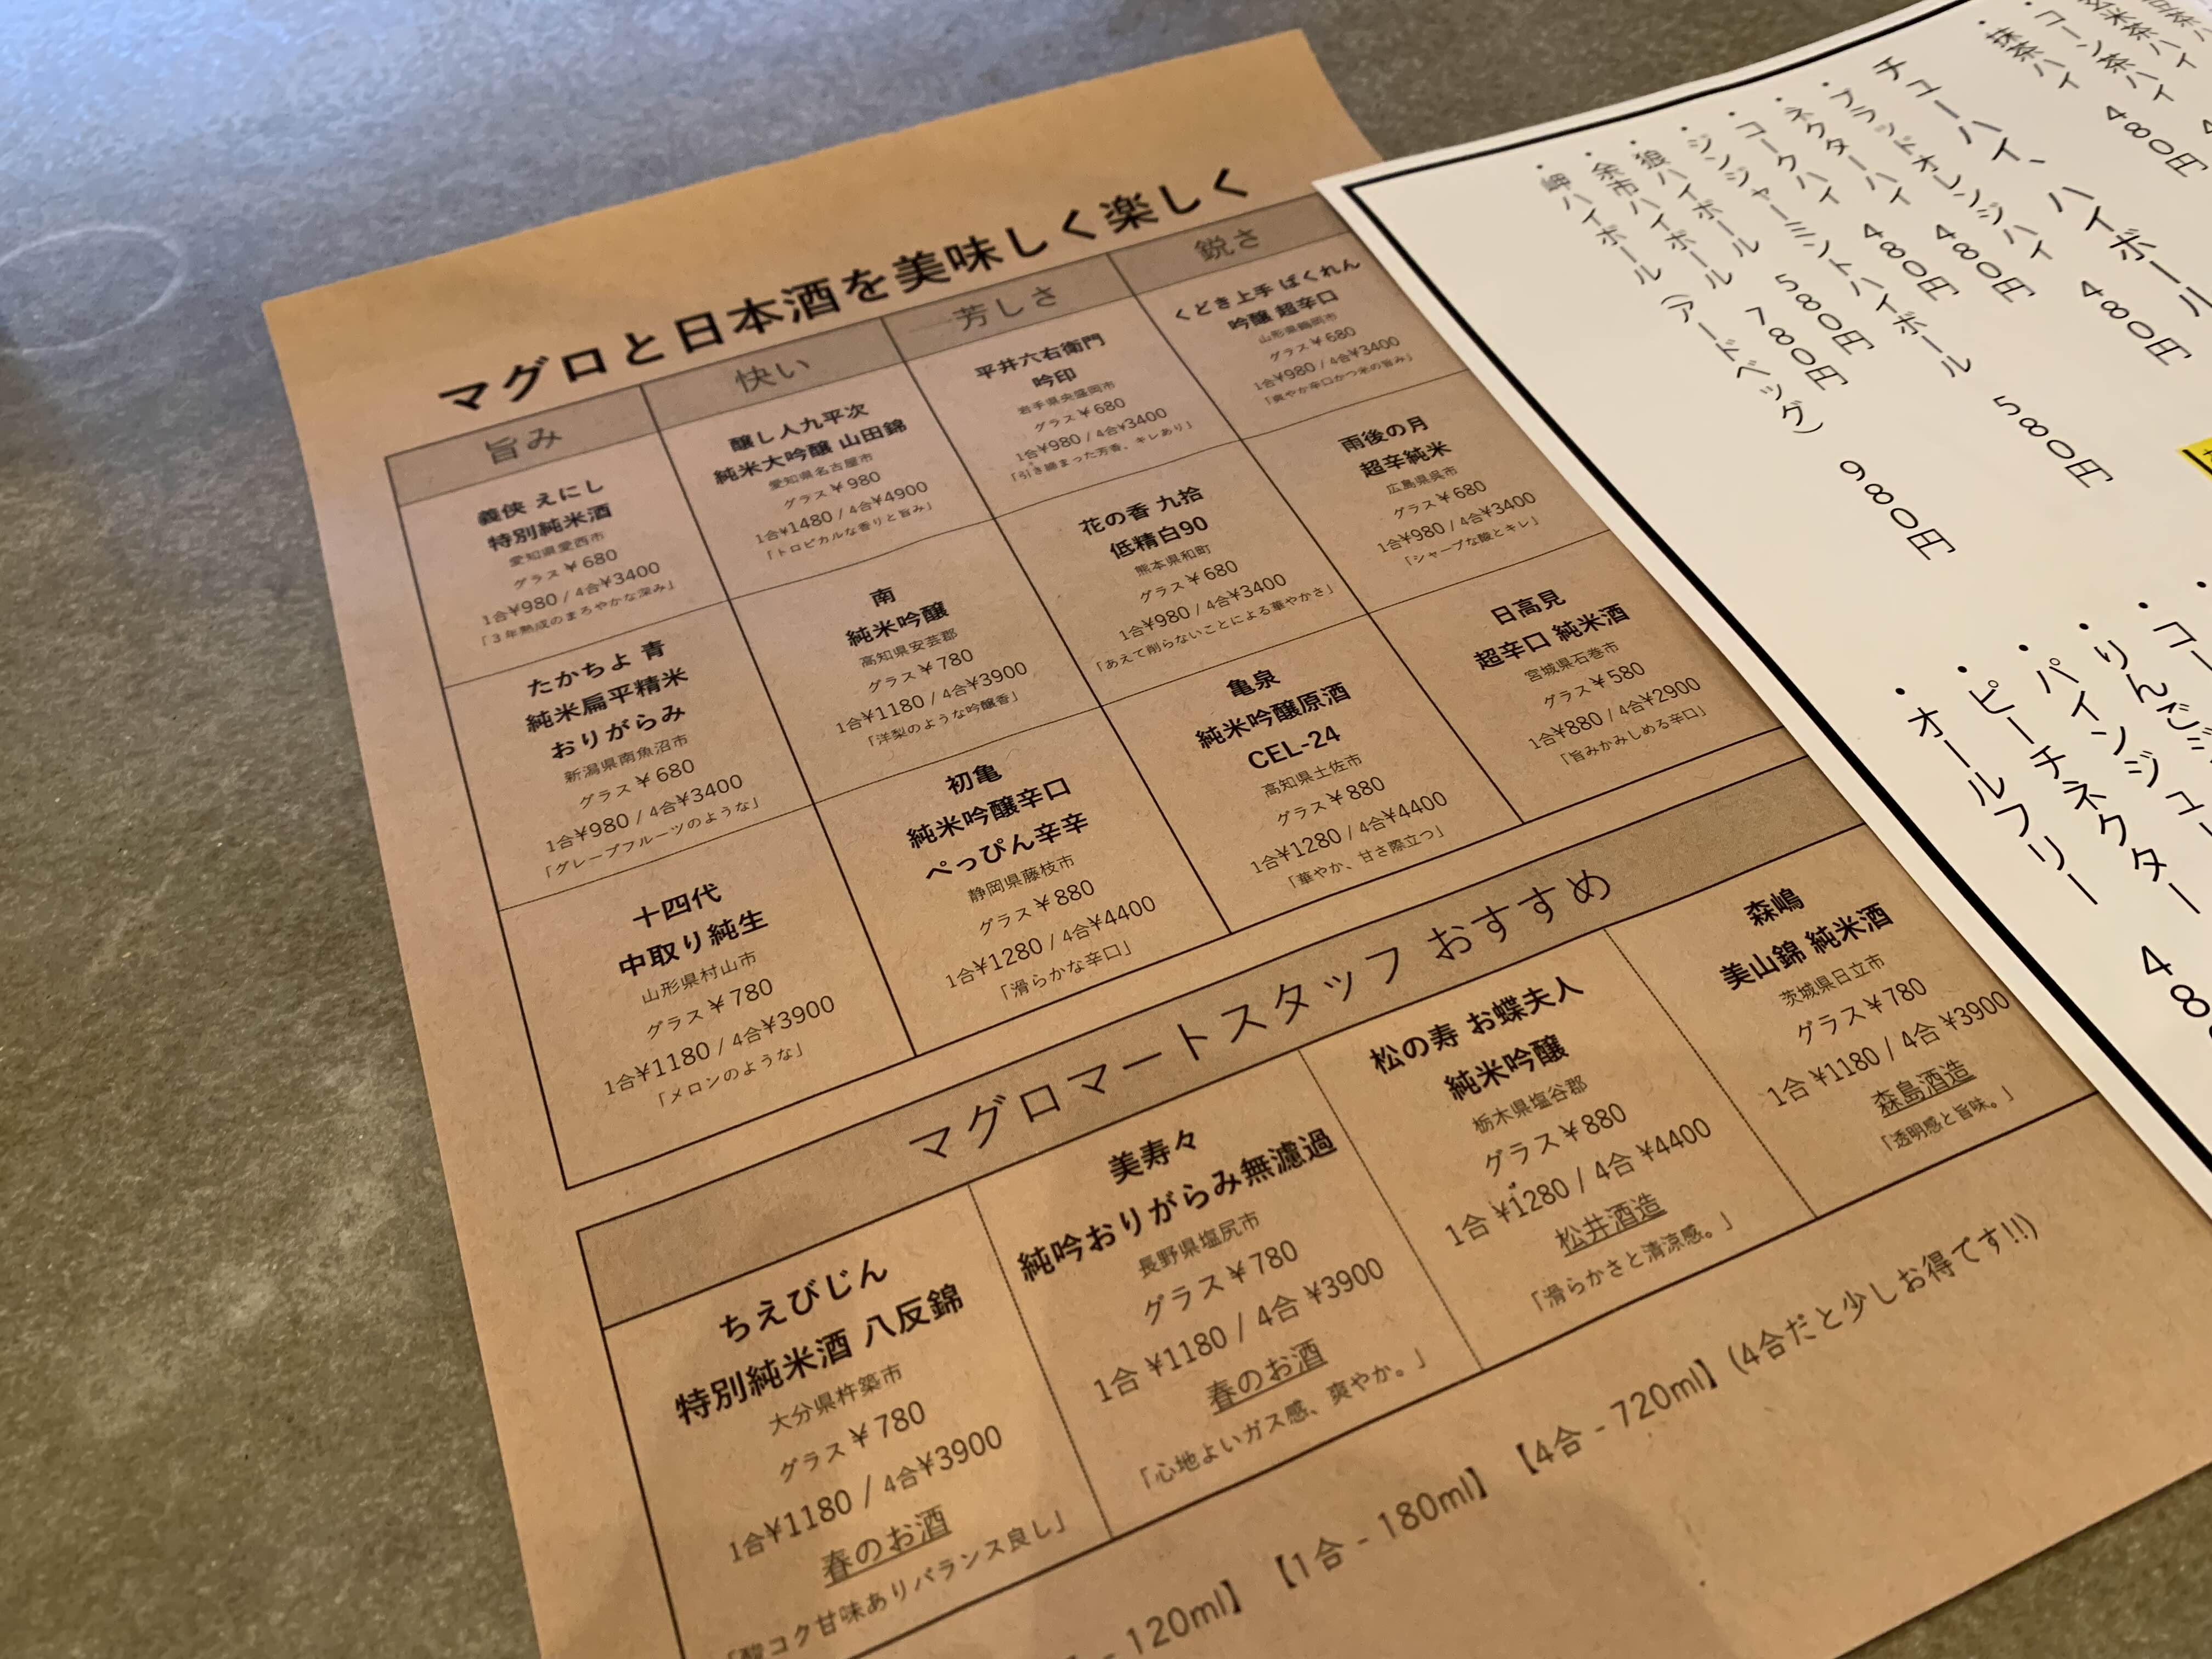 マグロと日本酒を美味しく楽しく
旨み
義侠 えにし
特別純米酒
愛知県愛西市
グラス￥680
1合¥980 / 4合¥3400
「3年熟成のまろやかな深み」
たかちよ 青
純米扁平精米
おりがらみ
新潟県南魚沼市
グラス￥680
1合¥980 / 4合¥3400
「グレープフルーツのような」
十四代
中取り純生
山形県村山市
グラス￥780
1合¥1180 / 4合¥3900
「メロンのような」
快い
醸し人九平次
純米大吟醸 山田錦
愛知県名古屋市
グラス￥980
1合¥1480 / 4合¥4900
「トロピカルな香りと旨み」
南
純米吟醸
高知県安芸郡
グラス￥780
1合¥1180 / 4合¥3900
「洋梨のような吟醸香」
初亀
純米吟醸辛口
べっぴん辛辛
静岡県藤枝市
グラス￥880
1合¥1280 / 4合¥4400
「滑らかな辛口」
芳しさ
平井六右衛門
吟印
岩手県央盛岡市
グラス￥680
1合¥980 / 4合¥3400
「引き締まった芳香、キレあり」
花の香 九拾
低精白90
熊本県和町
グラス￥680
1合¥980 / 4合¥3400
「あえて削らないことによる華やかさ」
亀泉
純米吟醸原酒
CEL-24
高知県土佐市
グラス￥880
1合¥1280 / 4合¥4400
「華やか、甘さ際立つ」
鋭さ
くどき上手 ばくれん
吟醸 超辛口
山形県鶴岡市
グラス￥680
1合¥980 / 4合¥3400
「爽やか辛口かつ米の旨み」
雨後の月
超辛純米
広島県呉市
グラス￥680
1合¥980 / 4合¥3400
「シャープな酸とキレ」
日高見
超辛口 純米酒
宮城県石巻市
グラス￥580
1合¥880 / 4合¥2900
「旨みかみしめる辛口」
マグロマートスタッフ おすすめ
ちえびじん
特別純米酒 八反錦
大分県杵築市
グラス￥780
1合¥1180 / 4合¥3900
春のお酒
「酸コク甘味ありバランス良し」
美寿々
純吟おりがらみ無濾過
長野県塩尻市
グラス￥780
1合 ¥1180 / 4合 ¥3900
春のお酒
「心地よいガス感、爽やか。」
松の寿 お蝶夫人
純米吟醸
栃木県塩谷郡
グラス￥880
1合 ¥1280 / 4合 ¥4400
松井酒造
「滑らかさと清涼感。」
森嶋
美山錦 純米酒
茨城県日立市
グラス￥780
1合 ¥1180 / 4合 ¥3900
森島酒造
「透明感と旨味。」
- 120ml】 【1合 - 180ml】 【4合 - 720ml】(4合だと少しお得です!!)
・コーン茶ハイ
・抹茶ハイ 480円
チューハイ、ハイボール
・ブラッドオレンジハイ 480円
・ネクターハイ 480円
・コークハイ 480円
・ジンジャーミントハイボール 580円
・狼ハイボール 580円
・余市ハイボール 780円
・岬ハイボール（アードベッグ） 980円
・りんごジ
・パインジュー
・ピーチネクター
・オールフリー 48